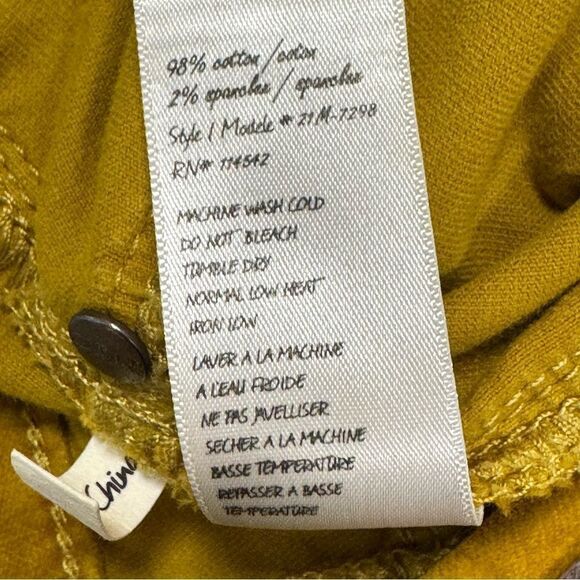 98% cotton / coton
2% spandex / spandex
Style / Modele # 21M-7298
RN# 114642
MACHINE WASH COLD
DO NOT BLEACH
TUMBLE DRY
NORMAL LOW HEAT
IRON LOW
LAVER A LA MACHINE
A L'EAU FROIDE
NE PAS JAVELLISER
SECHER A LA MACHINE
BASSE TEMPERATURE
REPASSER A BASSE
TEMPERATURE
China